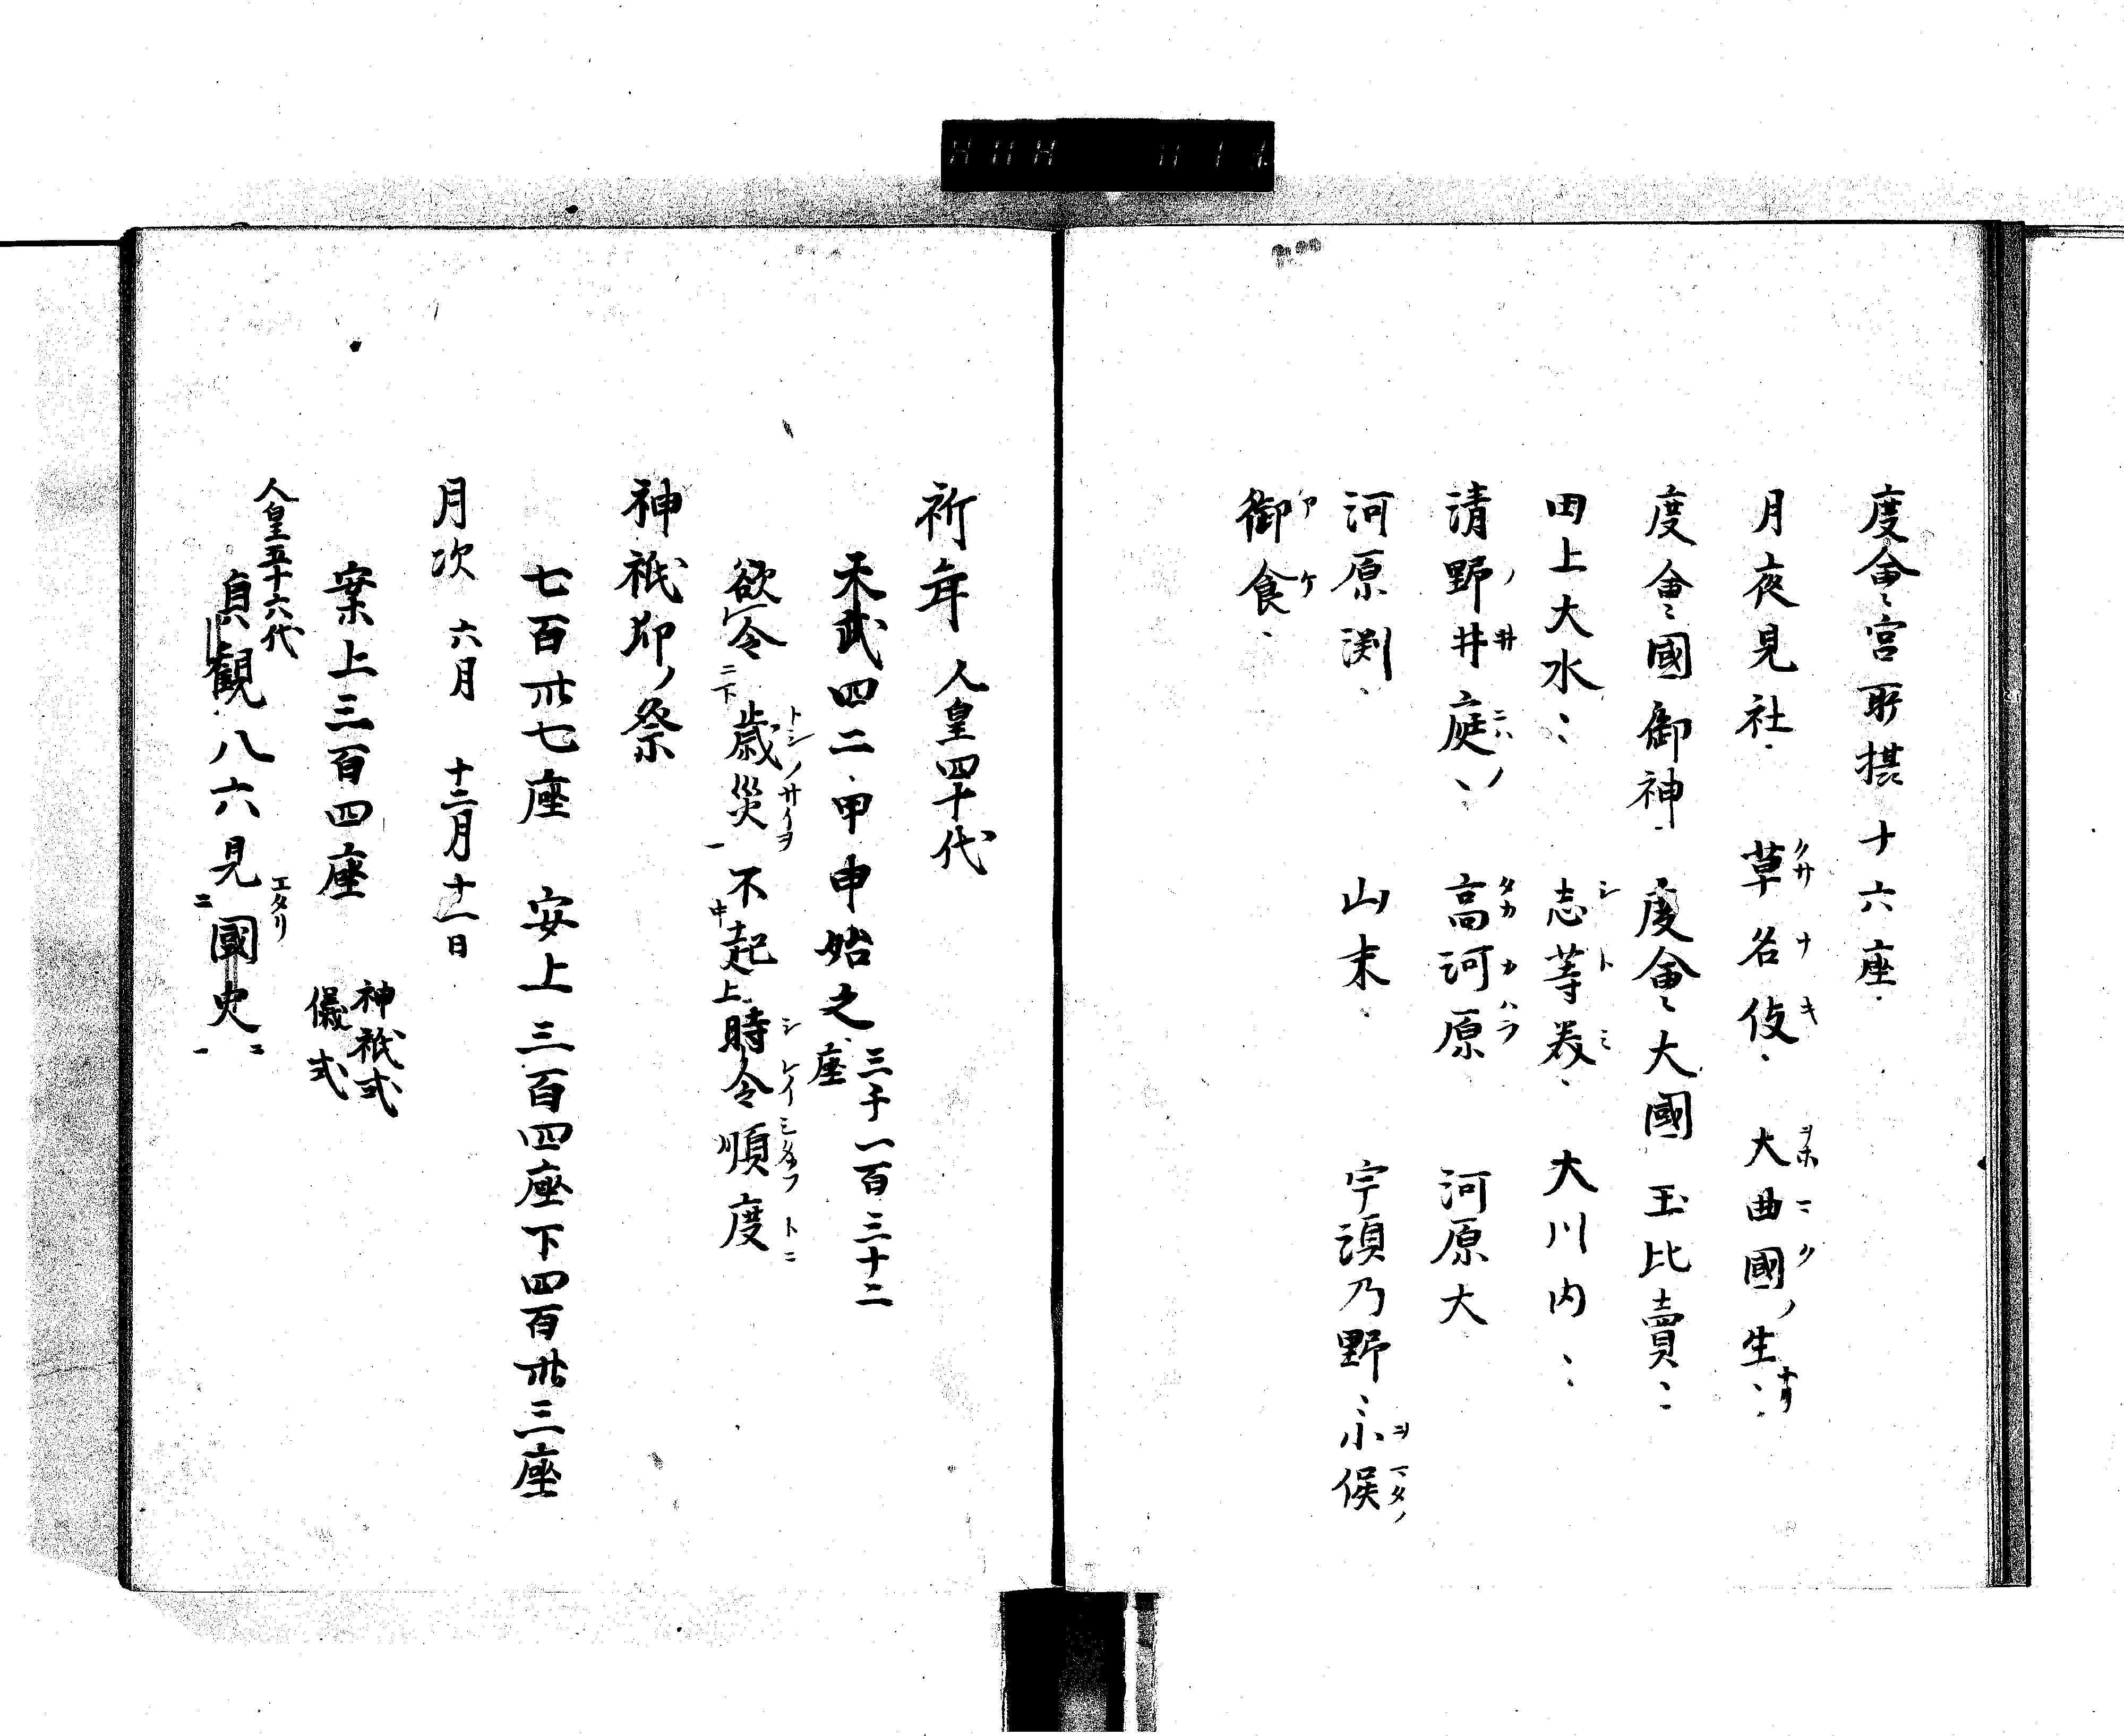 度會〻宮所摂十六座
月夜見社、 草名伎、 大曲國ノ生〻
度會〻國御神、 度會〻大國玉比賣〻
田上大水〻 志等美、 大川内〻
清野井庭〻 高河原 河原大
河原渕、 山末、 宇須乃野〻 小俣
御食、
祈年 人皇四十代
天武四二、甲申始之 三千一百三十二座
欲令歳災不起時令順度
神祇卯ノ祭
七百卅七座 安上三百四座下四百卅三座
月次 六月 十二月十一日
案上三百四座 神祇式 儀式
人皇五十六代
貞観八六見國史